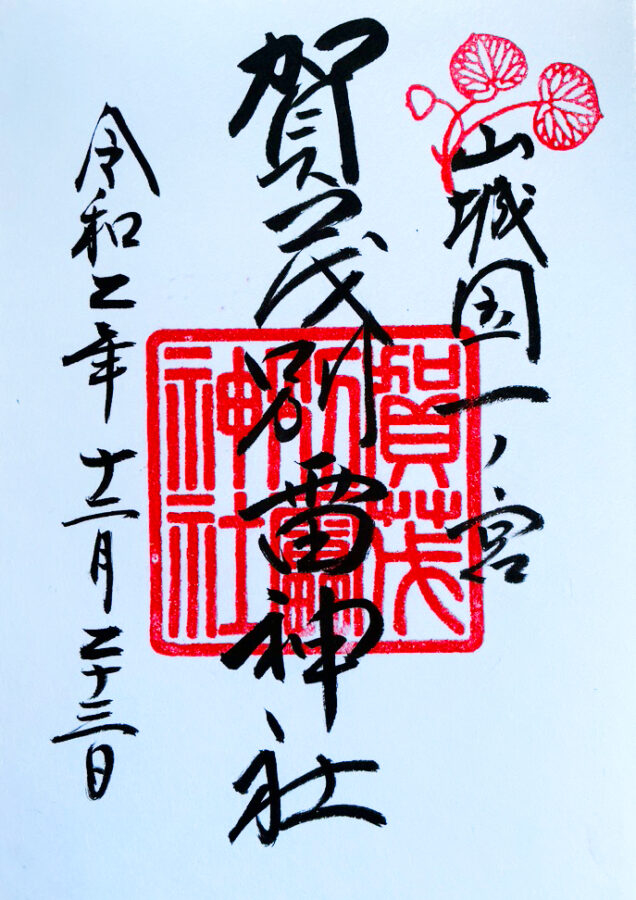 山城国一ノ宮
賀茂別雷神社
賀茂
別雷
神社
令和二年十二月二十三日